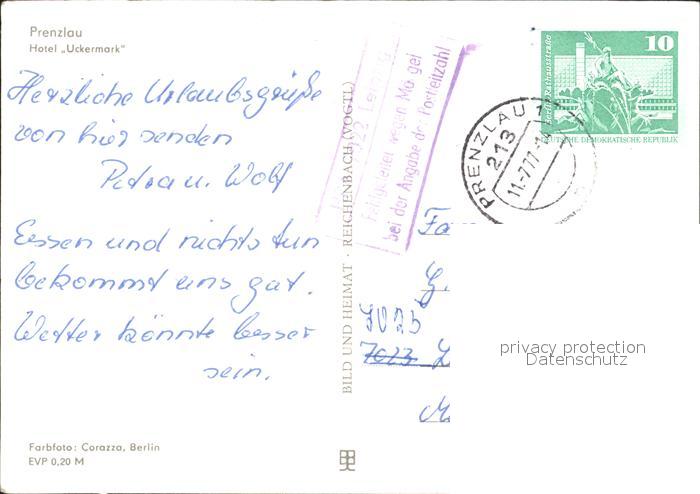 Prenzlau
Hotel „Uckermark"
Herzliche Urlaubsgrüße
von hier senden
Petra u. Wolf
Essen und nichts tun
bekommt uns gut.
Wetter könnte besser
sein.
Farbfoto: Corazza, Berlin
EVP 0,20 M
BILD UND HEIMAT · REICHENBACH (VOGTL)
Fehlgeleitet wegen Mängel
bei der Angabe der Postleitzahl
PRENZLAU 1
213
11.-7.77
10
Berlin, Rathausstraße
DEUTSCHE DEMOKRATISCHE REPUBLIK
Fa
G.
7025
7023 L
M
privacy protection
Datenschutz